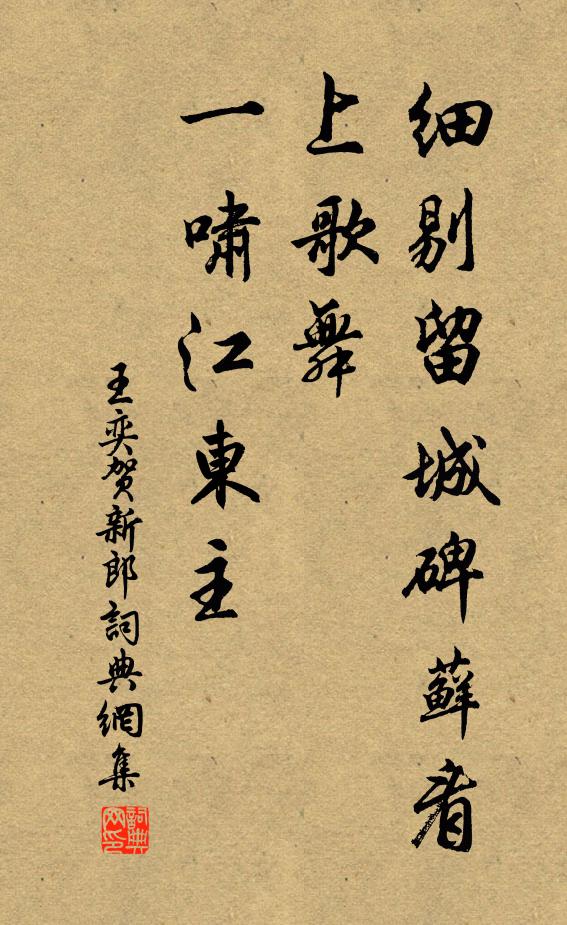 细剔留城碑蘚看
上歌舞
一嘯江東主
王奕賀新郎詞典網集
詞典网印